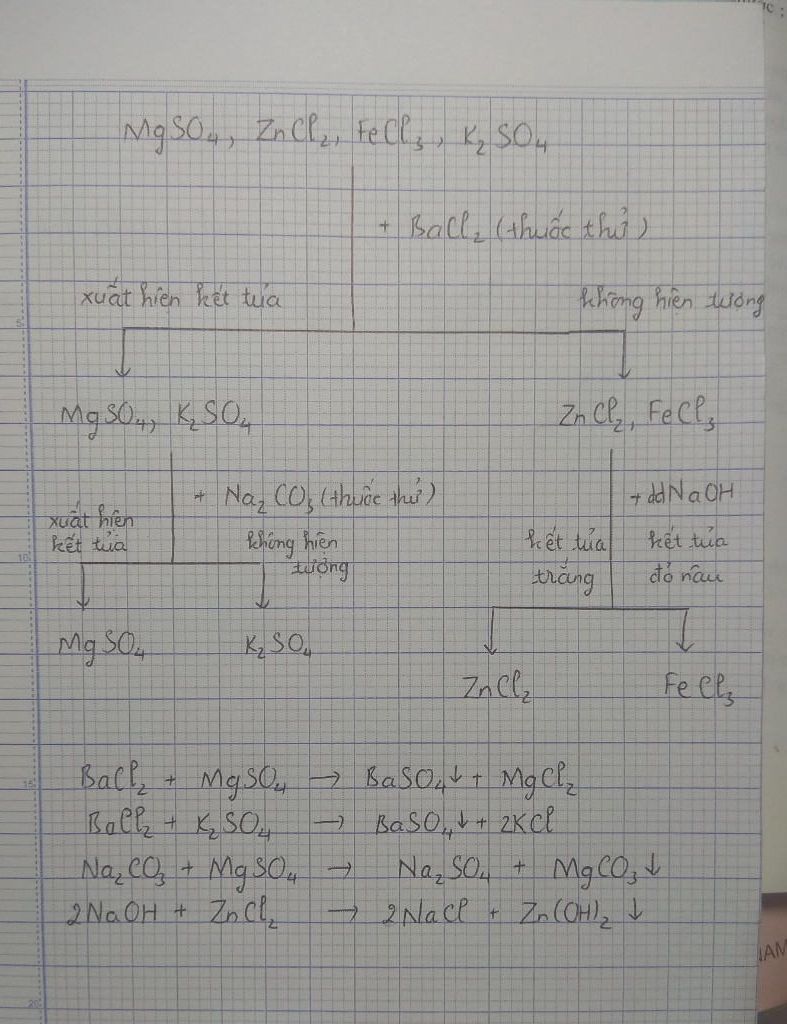 MgSO₄, ZnCl₂, FeCl₃, K₂SO₄
+ BaCl₂ (thuốc thử)
xuất hiện kết tủa
không hiện tượng
MgSO₄, K₂SO₄
ZnCl₂, FeCl₃
+ Na₂CO₃ (thuốc thử)
xuất hiện
kết tủa
không hiện
tượng
+ ddNaOH
kết tủa
trắng
kết tủa
đỏ nâu
MgSO₄
K₂SO₄
ZnCl₂
FeCl₃
BaCl₂ + MgSO₄ → BaSO₄↓ + MgCl₂
BaCl₂ + K₂SO₄ → BaSO₄↓ + 2KCl
Na₂CO₃ + MgSO₄ → Na₂SO₄ + MgCO₃↓
2NaOH + ZnCl₂ → 2NaCl + Zn(OH)₂ ↓